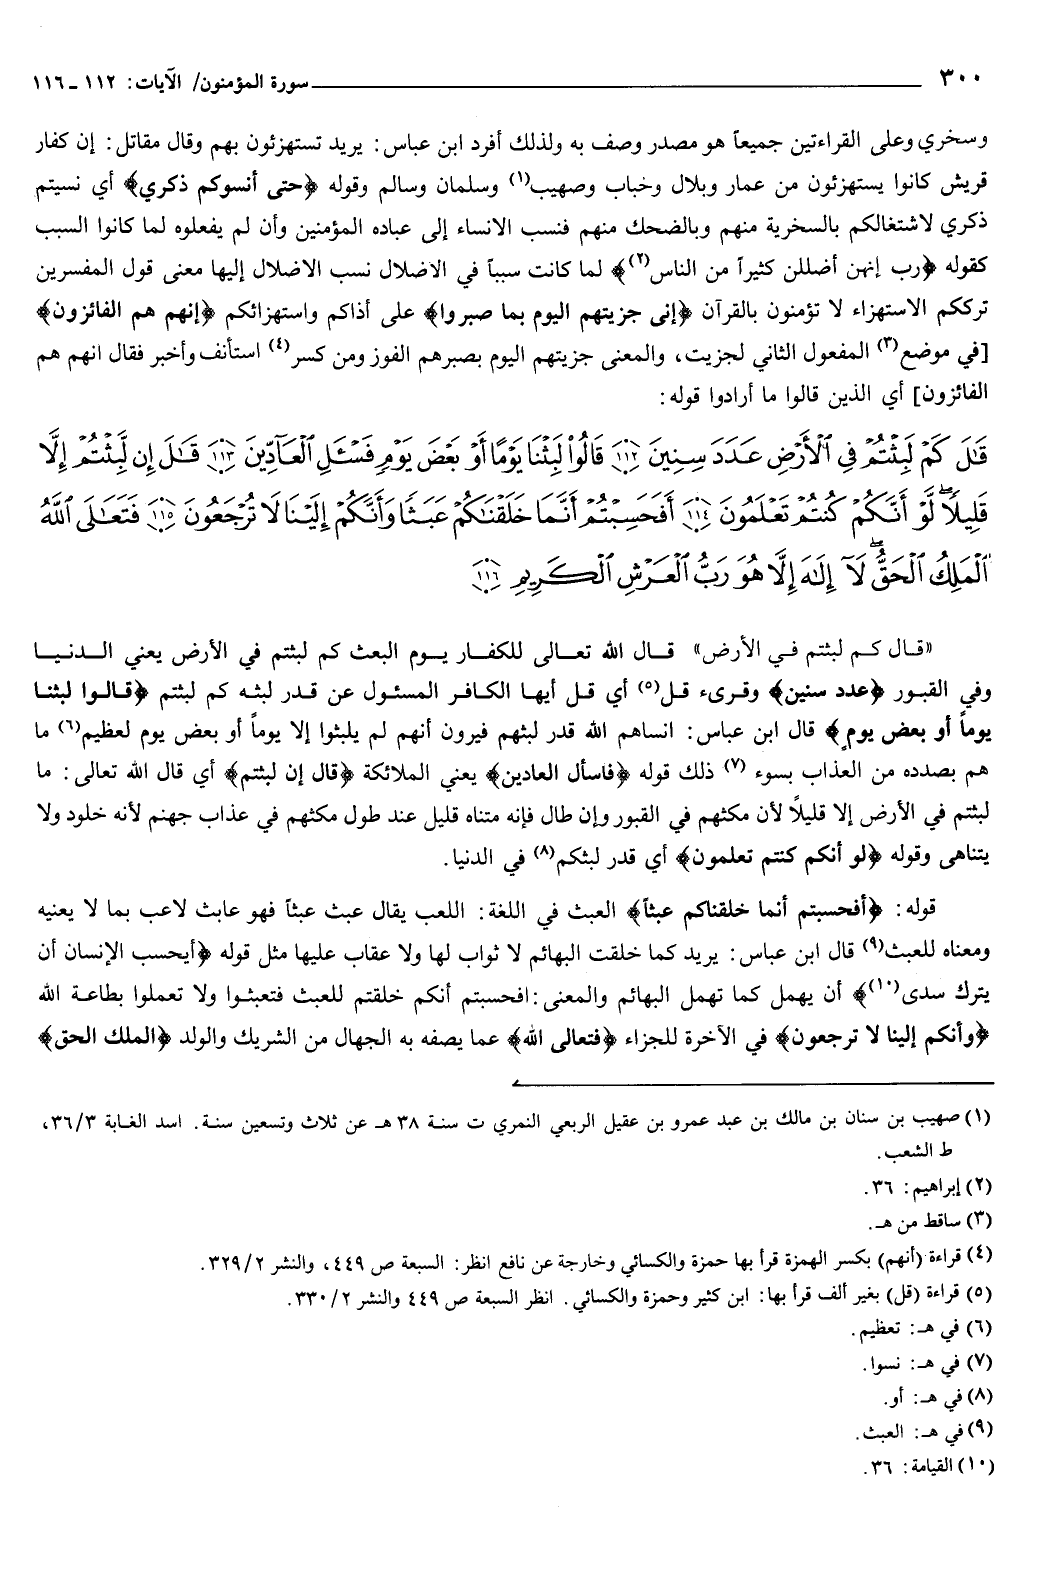 ٣٠٠ سورة المؤمنون/ الآيات: ١١٢ ـ ١١٦
وسخري وعلى القراءتين جميعاً هو مصدر وصف به ولذلك أفرد ابن عباس: يريد تستهزئون بهم وقال مقاتل: إن كفار
قريش كانوا يستهزئون من عمار وبلال وخباب وصهيب(١) وسلمان وسالم وقوله ﴿حتى أنسوكم ذكري﴾ أي نسيتم
ذكري لاشتغالكم بالسخرية منهم وبالضحك منهم فنسب الانساء إلى عباده المؤمنين وأن لم يفعلوه لما كانوا السبب
كقوله ﴿رب إنهن أضللن كثيراً من الناس(٢)﴾ لما كانت سبباً في الاضلال نسب الاضلال إليها معنى قول المفسرين
ترككم الاستهزاء لا تؤمنون بالقرآن ﴿إني جزيتهم اليوم بما صبروا﴾ على أذاكم واستهزائكم ﴿إنهم هم الفائزون﴾
[في موضع(٣) المفعول الثاني لجزيت، والمعنى جزيتهم اليوم بصبرهم الفوز ومن كسر(٤) استأنف وأخبر فقال انهم هم
الفائزون] أي الذين قالوا ما أرادوا قوله:
قَٰلَ كَمْ لَبِثْتُمْ فِي ٱلْأَرْضِ عَدَدَ سِنِينَ ۝١١٢ قَالُوا۟ لَبِثْنَا يَوْمًا أَوْ بَعْضَ يَوْمٍ فَسْـَٔلِ ٱلْعَآدِّينَ ۝١١٣ قَٰلَ إِن لَّبِثْتُمْ إِلَّا
قَلِيلًا ۖ لَّوْ أَنَّكُمْ كُنتُمْ تَعْلَمُونَ ۝١١٤ أَفَحَسِبْتُمْ أَنَّمَا خَلَقْنَٰكُمْ عَبَثًا وَأَنَّكُمْ إِلَيْنَا لَا تُرْجَعُونَ ۝١١٥ فَتَعَٰلَى ٱللَّهُ
ٱلْمَلِكُ ٱلْحَقُّ ۖ لَآ إِلَٰهَ إِلَّا هُوَ رَبُّ ٱلْعَرْشِ ٱلْكَرِيمِ ۝١١٦
«قال كم لبثتم في الأرض» قال الله تعالى للكفار يوم البعث كم لبثتم في الأرض يعني الدنيا
وفي القبور ﴿عدد سنين﴾ وقرىء قل(٥) أي قل أيها الكافر المسئول عن قدر لبثه كم لبثتم ﴿قالوا لبثنا
يوماً أو بعض يومٍ﴾ قال ابن عباس: انساهم الله قدر لبثهم فيرون أنهم لم يلبثوا إلا يوماً أو بعض يوم لعظيم(٦) ما
هم بصدده من العذاب بسوء (٧) ذلك قوله ﴿فاسأل العادين﴾ يعني الملائكة ﴿قال إن لبثتم﴾ أي قال الله تعالى: ما
لبثتم في الأرض إلا قليلاً لأن مكثهم في القبور وإن طال فإنه متناه قليل عند طول مكثهم في عذاب جهنم لأنه خلود ولا
يتناهى وقوله ﴿لو أنكم كنتم تعلمون﴾ أي قدر لبثكم(٨) في الدنيا.
قوله: ﴿أفحسبتم أنما خلقناكم عبثاً﴾ العبث في اللغة: اللعب يقال عبث عبثاً فهو عابث لاعب بما لا يعنيه
ومعناه للعبث(٩) قال ابن عباس: يريد كما خلقت البهائم لا ثواب لها ولا عقاب عليها مثل قوله ﴿أيحسب الإنسان أن
يترك سدى(١٠)﴾ أن يهمل كما تهمل البهائم والمعنى: افحسبتم أنكم خلقتم للعبث فتعبثوا ولا تعملوا بطاعة الله
﴿وأنكم إلينا لا ترجعون﴾ في الآخرة للجزاء ﴿فتعالى الله﴾ عما يصفه به الجهال من الشريك والولد ﴿الملك الحق﴾
(١) صهيب بن سنان بن مالك بن عبد عمرو بن عقيل الربعي النمري ت سنة ٣٨ هـ عن ثلاث وتسعين سنة. اسد الغابة ٣٦/٣،
ط الشعب.
(٢) إبراهيم: ٣٦.
(٣) ساقط من هـ.
(٤) قراءة (أنهم) بكسر الهمزة قرأ بها حمزة والكسائي وخارجة عن نافع انظر: السبعة ص ٤٤٩، والنشر ٣٢٩/٢.
(٥) قراءة (قل) بغير ألف قرأ بها: ابن كثير وحمزة والكسائي. انظر السبعة ص ٤٤٩ والنشر ٣٣٠/٢.
(٦) في هـ: تعظيم.
(٧) في هـ: نسوا.
(٨) في هـ: أو.
(٩) في هـ: العبث.
(١٠) القيامة: ٣٦.